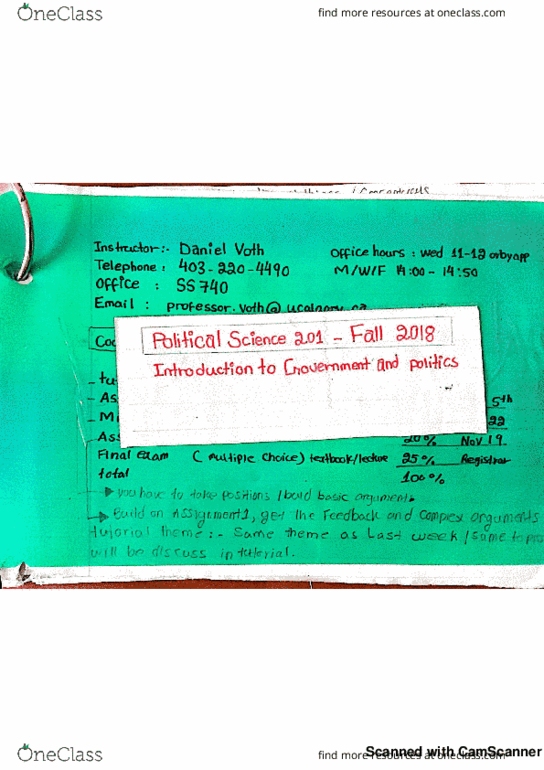 OneClass
find more resources at oneclass.com
Instructor:- Daniel Voth
Office hours : wed 11-12 orbyapp
Telephone : 403-220-4490
M/W/F 14:00 - 14:50
Office : SS 740
Email : professor.voth@ucalgary.ca
Political Science 201 - Fall 2018
Introduction to Government and politics
5th
22
20% Nov 19
Final exam (multiple choice) textbook/lecture 25% Registrar
total 100%
you have to take positions / build basic arguments
Build on Assignment1, get the Feedback and complex arguments
tutorial theme:- Same theme as last week / same topic
will be discuss in tutorial.
Scanned with CamScanner
OneClass
find more resources at oneclass.com